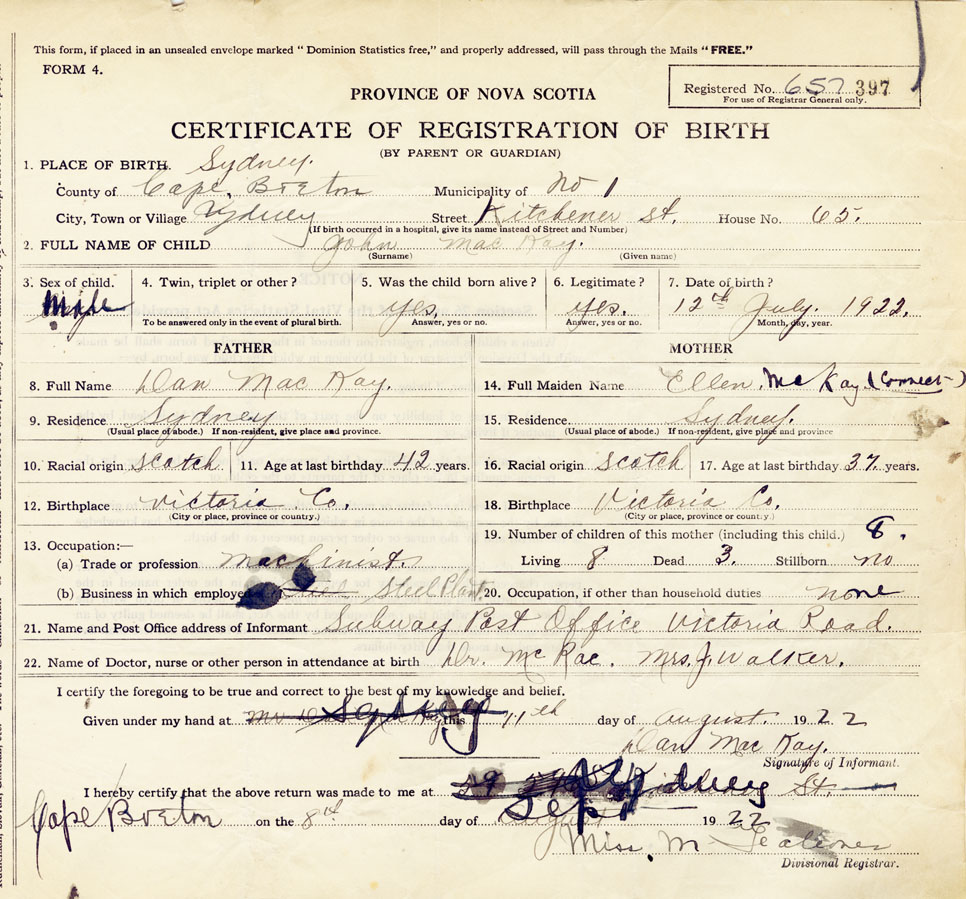 This form, if placed in an unsealed envelope marked "Dominion Statistics free," and properly addressed, will pass through the Mails "FREE."
FORM 4.
Registered No. 657 397
For use of Registrar General only.
PROVINCE OF NOVA SCOTIA
CERTIFICATE OF REGISTRATION OF BIRTH
(BY PARENT OR GUARDIAN)
1. PLACE OF BIRTH. Sydney.
County of Cape Breton Municipality of No 1
City, Town or Village Sydney Street Kitchener St. House No. 65.
(If birth occurred in a hospital, give its name instead of Street and Number)
2. FULL NAME OF CHILD John Mac Kay.
(Surname) (Given name)
3. Sex of child. 4. Twin, triplet or other? 5. Was the child born alive? 6. Legitimate? 7. Date of birth?
Male yes. yes. 12th July. 1922.
To be answered only in the event of plural birth. Answer, yes or no. Answer, yes or no. Month, day, year.
FATHER MOTHER
8. Full Name Dan Mac Kay. 14. Full Maiden Name Ellen Mc Kay (Correct)
9. Residence Sydney 15. Residence Sydney.
(Usual place of abode.) If non-resident, give place and province. (Usual place of abode.) If non-resident, give place and province
10. Racial origin Scotch 11. Age at last birthday 42 years. 16. Racial origin Scotch 17. Age at last birthday 37. years.
12. Birthplace Victoria Co. 18. Birthplace Victoria Co.
(City or place, province or country.) (City or place, province or country.)
13. Occupation:— 19. Number of children of this mother (including this child.) 8.
(a) Trade or profession machinist. Living 8 Dead 3. Stillborn no
(b) Business in which employed Steel Plant 20. Occupation, if other than household duties none
21. Name and Post Office address of Informant Subway Post Office Victoria Road.
22. Name of Doctor, nurse or other person in attendance at birth Dr. McRae. Mrs. J. Walker.
I certify the foregoing to be true and correct to the best of my knowledge and belief.
Given under my hand at Sydney this 11th day of August. 1922
Dan Mac Kay.
Signature of Informant.
I hereby certify that the above return was made to me at 29 St.
Cape Breton on the 8th day of Sept 1922
Miss. M
Divisional Registrar.